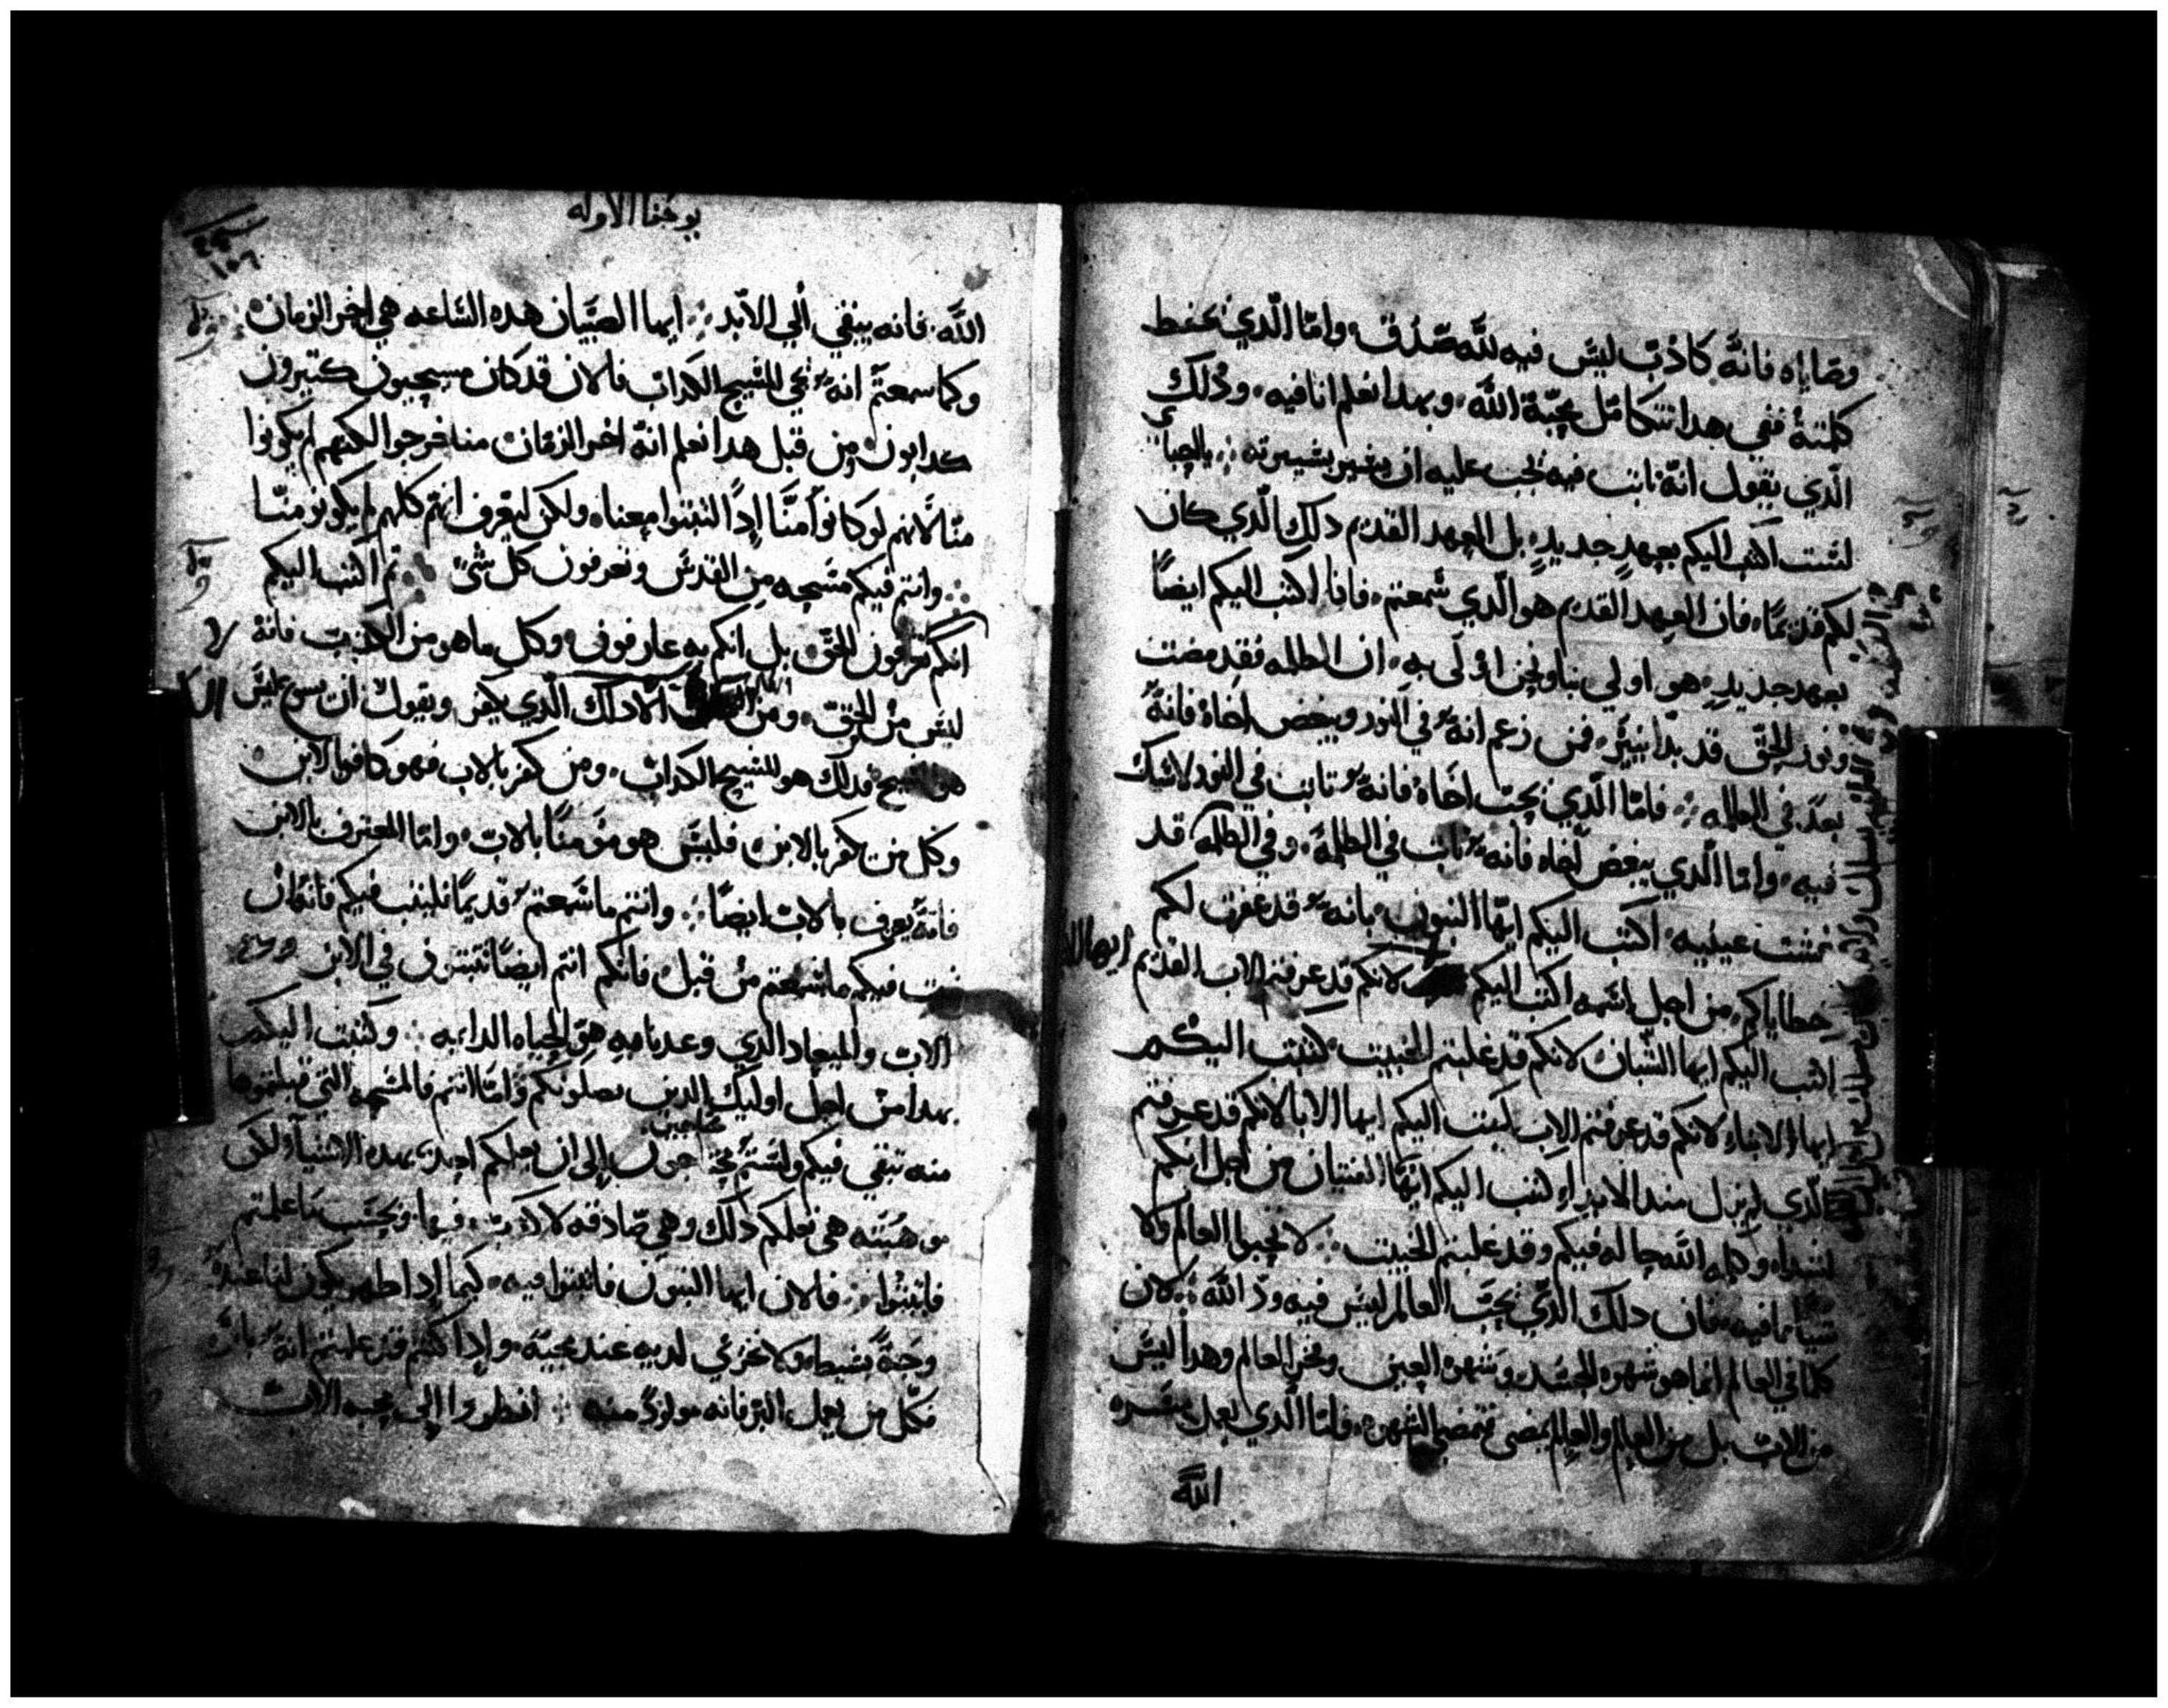 وصاياه فانه كاذب ليس فيه لله صدق وامّا الّذي يحفظ
كلمته ففي هدا تتكامل محبّة الله وبهدا نعلم انا فيه وذلك
الّذي يقول انّه ثابت فيه يجب عليه ان يسير بسيرته
لست اكتب اليكم بعهدٍ جديدٍ بل العهد القديم ذلك الّذي كان
لكم قديمًا فان العهد القديم هو الّذي سمعتم فانا اكتب اليكم ايضًا
بعهد جديدٍ هو اولي بنا ونحن اولى به ان الظلمه فقد مضت
ونور الحقّ قد بدا يبين فمن زعم انه في النور ويبغض اخاه فانه
بعدُ في الظلمه فامّا الّذي يحبّ اخاه فانه ثابت في النور لا شك
فيه وامّا الّذي يبغض اخاه فانه ثابت في الظلمة وفي الظلمه قد
عينيه اكتب اليكم ايّها البنون بانه قد غفرت لكم
خطاياكم من اجل اسمه اكتب اليكم لانكم قد عرفتم الاب القديم
ايها
اكتب اليكم ايها الشّبان لانكم قد غلبتم الخبيث كتبت اليكم
ايها الابناء لانكم قد عرفتم الاب كتبت اليكم ايها الابا لانكم قد عرفتم
الّذي لم يزل مند الابداء كتبت اليكم ايّها الفتيان من اجل انكم
اشداء وكلمه الله حاله فيكم وقد غلبتم الخبيث لا تحبوا العالم ولا
شيًا مما فيه فان دلك الدّي يحبّ العالم ليس فيه ودّ الله لان
كلما في العالم انما هو شهوه الجسد وشهوه العين وفخر العالم وهدا ليس
من الاب بل من العالم والعالم يمضي وتمضي الشهوه فامّا الّذي يعمل بمسره
الله
يوحنا الاوله
١٥٦
الله فانه يبقي الي الابد ايها الصبيان هده الساعه هي اخر الزمان
وكما سمعتم انه يجي المسيح الكداب فالان قد كان مسيحيون كتيرون
كدابون ومن قبل هدا نعلم انه اخر الزمان منا خرجوا لكنهم لم يكونوا
منّا لانهم لو كانوا منّا إدًا لثبتوا معنا ولكن ليعرف انهم كلهم لم يكونو منّا
وانتم فيكم مسحه من القدس وتعرفون كل شئ لم اكتب اليكم
انكم تعرفون الحق بل انكم به عارفون وكل ما هو من الكذب فانه
ليس من الحق ومن الا داك الّذي يكفر ويقول ان يسوع ليس
هو المسيح فدلك هو المسيح الكداب ومن كفر بالاب فهو كافر بالابن
وكل من يكفر بالابن فليس هو مؤمنًا بالاب وامّا المعترف بالابن
فانه يعرف بالاب ايضًا وانتم ما سمعتم قديمًا فليثبت فيكم فانه ان
ثبت فيكم ما سمعتم من قبل فانكم انتم ايضًا تثبتون في الابن
الاب والميعاد الّذي وعدنا به هو الحياه الدايمه وكتبت اليكم
بهدا من اجل اوليك الدين يضلونكم وامّا انتم فالمسحه التي قبلتموها
محتاجين
منه تبقي فيكم ولستم إلى ان يعلمكم احد بهده الاشياء لكن
موهبته هي تعلمكم ذلك وهي صادقه لا كدب فيها وبحسب ما علمتم
فاثبتوا فالان ايها البنون فاثبتوا فيه كيما إدا ظهر يكون لنا عنده
وجهً بسيط ولا نخزي لديه عند مجيّه وإدا كنتم قد علمتم انه بارّ
فكل من يعمل البر فانه مولود منه انظروا إلى محبه الاب